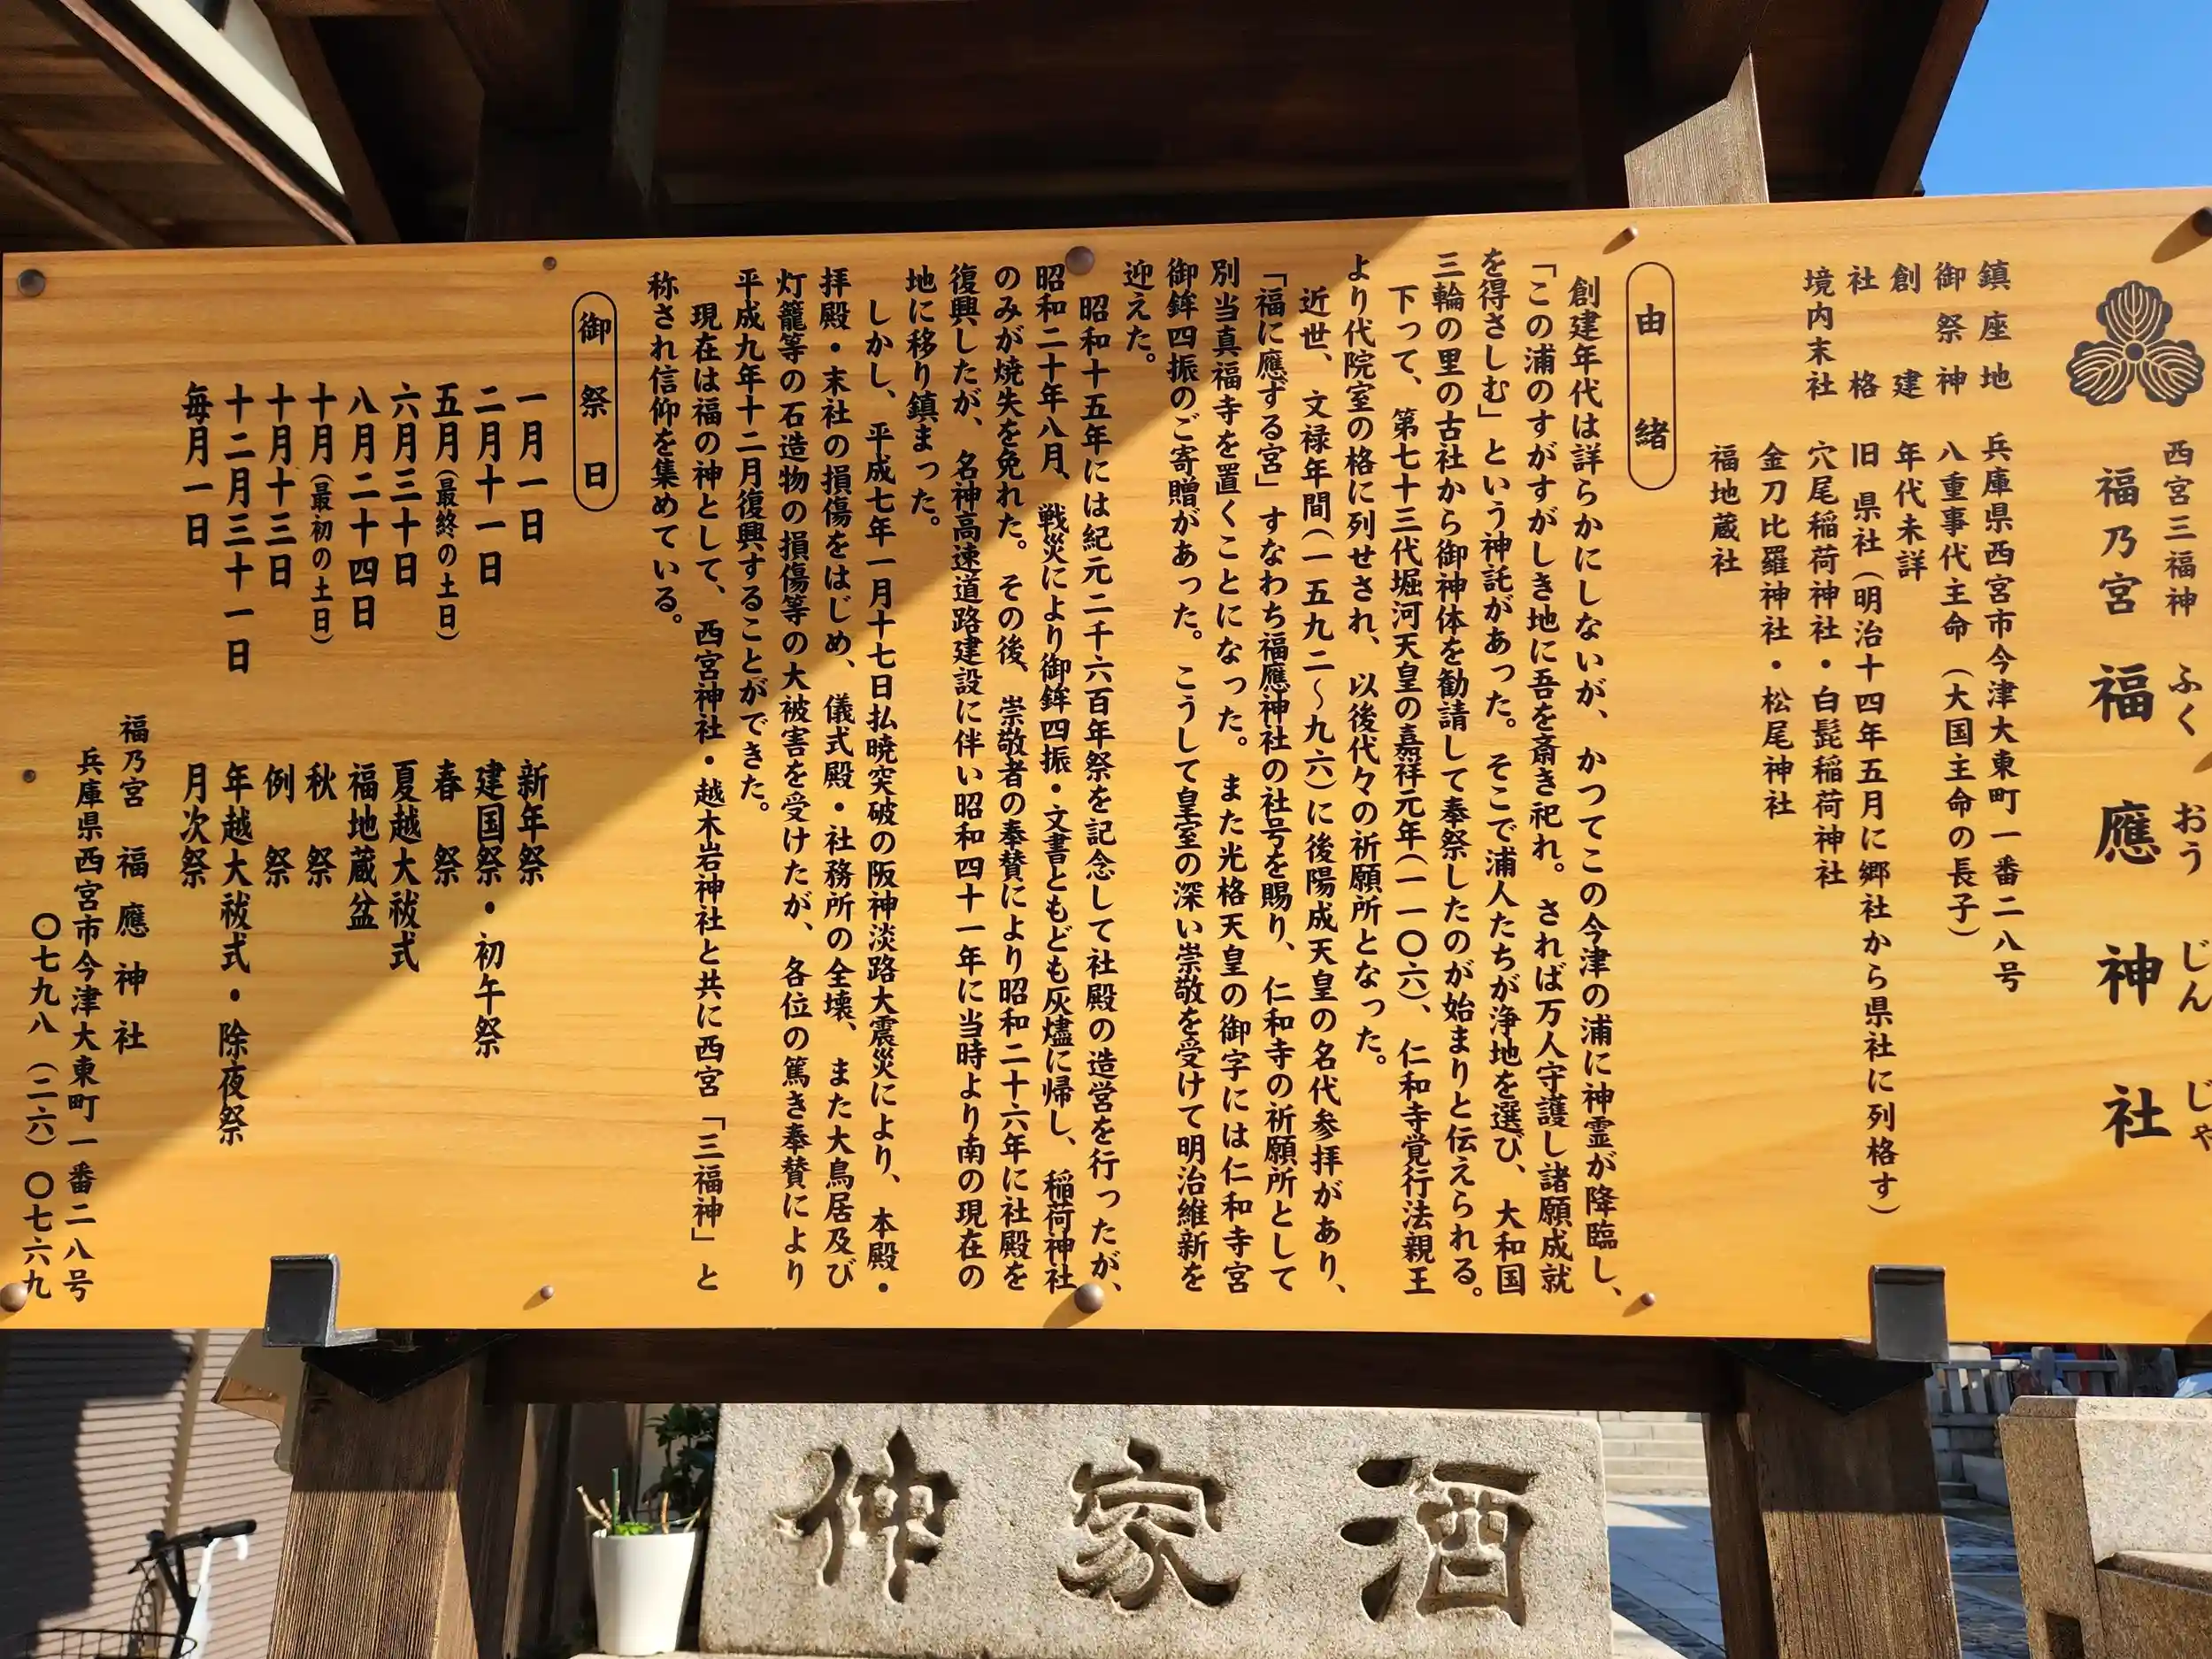 西宮三福神
ふくおうじんじゃ
福乃宮 福應神社
鎮座地 兵庫県西宮市今津大東町一番二八号
御祭神 八重事代主命（大国主命の長子）
創建 年代未詳
社格 旧 県社（明治十四年五月に郷社から県社に列格す）
境内末社 穴尾稲荷神社・白髭稲荷神社
金刀比羅神社・松尾神社
福地蔵社
由緒
創建年代は詳らかにしないが、かつてこの今津の浦に神霊が降臨し、
「この浦のすがすがしき地に吾を斎き祀れ。されば万人守護し諸願成就
を得さしむ」という神託があった。そこで浦人たちが浄地を選び、大和国
三輪の里の古社から御神体を勧請して奉祭したのが始まりと伝えられる。
下って、第七十三代堀河天皇の嘉祥元年（一一〇六）、仁和寺覚行法親王
より代院室の格に列せされ、以後代々の祈願所となった。
近世、文禄年間（一五九二〜九六）に後陽成天皇の名代参拝があり、
「福に應ずる宮」すなわち福應神社の社号を賜り、仁和寺の祈願所として
別当真福寺を置くことになった。また光格天皇の御字には仁和寺宮
御鉾四振のご寄贈があった。こうして皇室の深い崇敬を受けて明治維新を
迎えた。
昭和十五年には紀元二千六百年祭を記念して社殿の造営を行ったが、
昭和二十年八月、戦災により御鉾四振・文書ともども灰燼に帰し、稲荷神社
のみが焼失を免れた。その後、崇敬者の奉賛により昭和二十六年に社殿を
復興したが、名神高速道路建設に伴い昭和四十一年に当時より南の現在の
地に移り鎮まった。
しかし、平成七年一月十七日払暁突破の阪神淡路大震災により、本殿・
拝殿・末社の損傷をはじめ、儀式殿・社務所の全壊、また大鳥居及び
灯籠等の石造物の損傷等の大被害を受けたが、各位の篤き奉賛により
平成九年十二月復興することができた。
現在は福の神として、西宮神社・越木岩神社と共に西宮「三福神」と
称され信仰を集めている。
御祭日
一月一日 新年祭
二月十一日 建国祭・初午祭
五月（最終の土日） 春祭
六月三十日 夏越大祓式
八月二十四日 福地蔵盆
十月（最初の土日） 秋祭
十月十三日 例祭
十二月三十一日 年越大祓式・除夜祭
毎月一日 月次祭
福乃宮 福應神社
兵庫県西宮市今津大東町一番二八号
〇七九八（二六）〇七六九
酒家仲